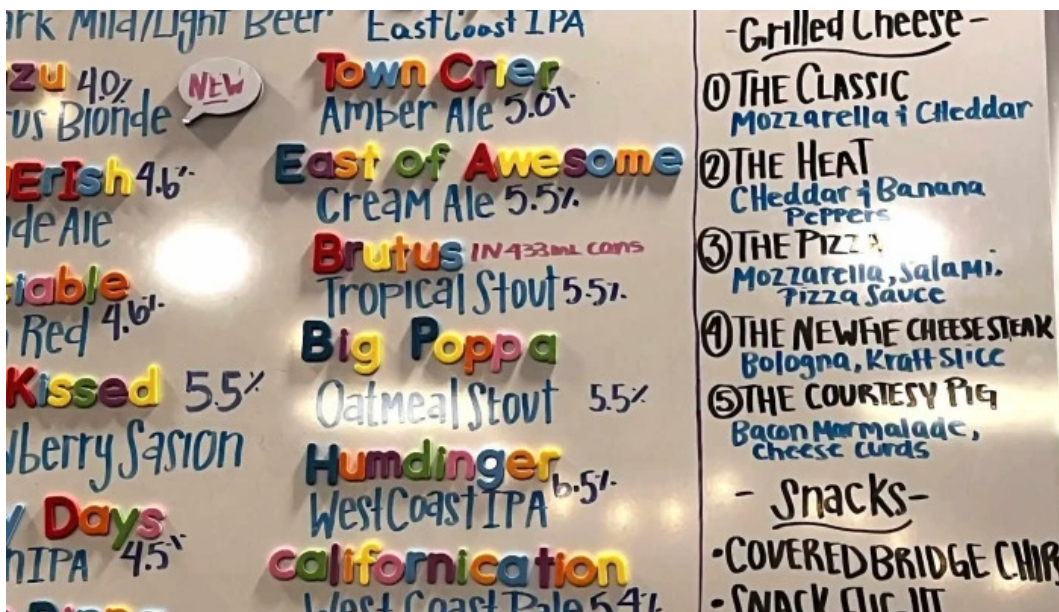 Mild/Light Beer
4.0%
NEW
Blonde
4.6%
Ale
Red 4.6%
Kissed 5.5%
Sasion
Days
IPA 4.5%
East Coast IPA
Town Crier
Amber Ale 5.0%
East of Awesome
Cream Ale 5.5%
Brutus IN 433mL cans
Tropical Stout 5.5%
Big Poppa
Oatmeal Stout 5.5%
Humdinger
West Coast IPA 6.5%
californication
West Coast Pale 5.4%
-Grilled Cheese-
① THE CLASSIC
Mozzarella & CHeddar
② THE HEAT
CHeddar & Banana
PePPers
③ THE PIZZA
Mozzarella, SalaMi,
Pizza Sauce
④ THE NEWFIE CHEESESTEAK
Bologna, Kraft Slice
⑤ THE COURTESY PIG
Bacon Marmalade,
cheese curds
- Snacks-
•COVERED BRIDGE
•SNACK